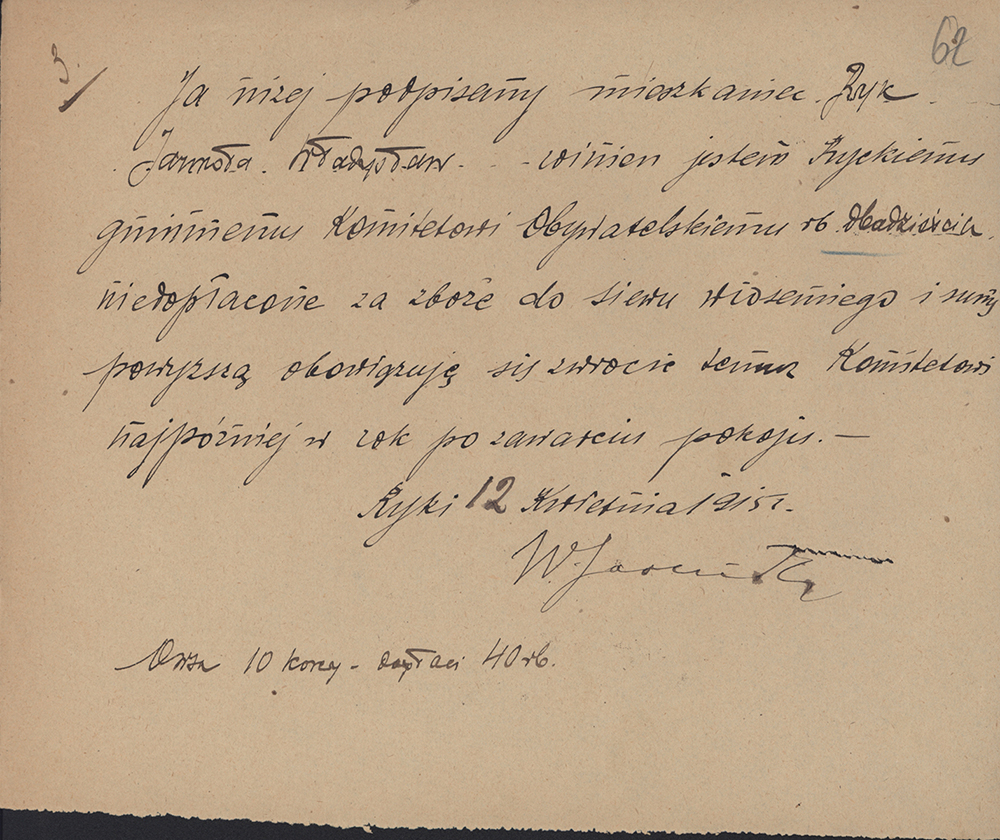 62
3.
Ja niżej podpisany mieszkaniec Ryk
Jarmoła Władysław winien jestem Ryckiemu
gminnemu Komitetowi Obywatelskiemu rb. dwadzieścia
niedopłacone za zboże do siewu wiosennego i sumę
powyższą obowiązuję się zwrócić temuż Komitetowi
najpóźniej w rok po zawarciu pokoju. —
Ryki 12 Kwietnia 1915 r.
W.
Owsa 10 korcy - dopłaci 40 rb.